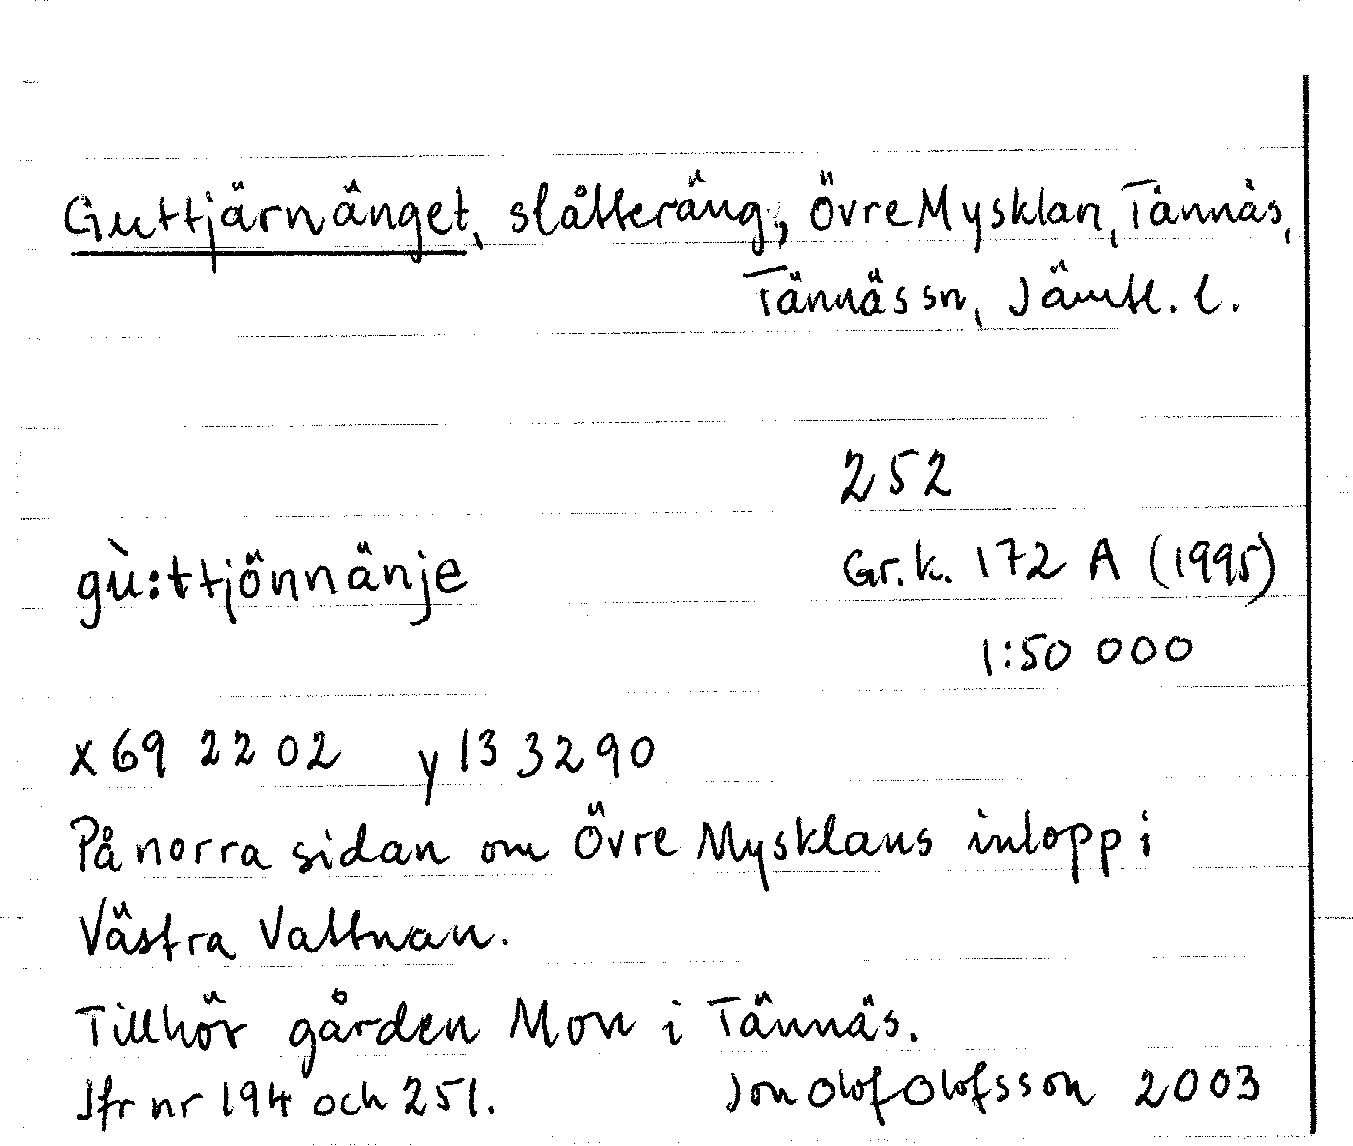 Guttjärnänget, slåtteräng, Övre Mysklan, Tännäs,
Tännäs sn, Jämtl. l.
252
gù:ttjönnänje
Gr.k. 172 A (1995)
1:50 000
x 69 22 02 y 13 32 90
På norra sidan om Övre Mysklans inlopp i
Västra Vattnan.
Tillhör gården Mon i Tännäs.
Jfr nr 194 och 251. Jon Olof Olofsson 2003